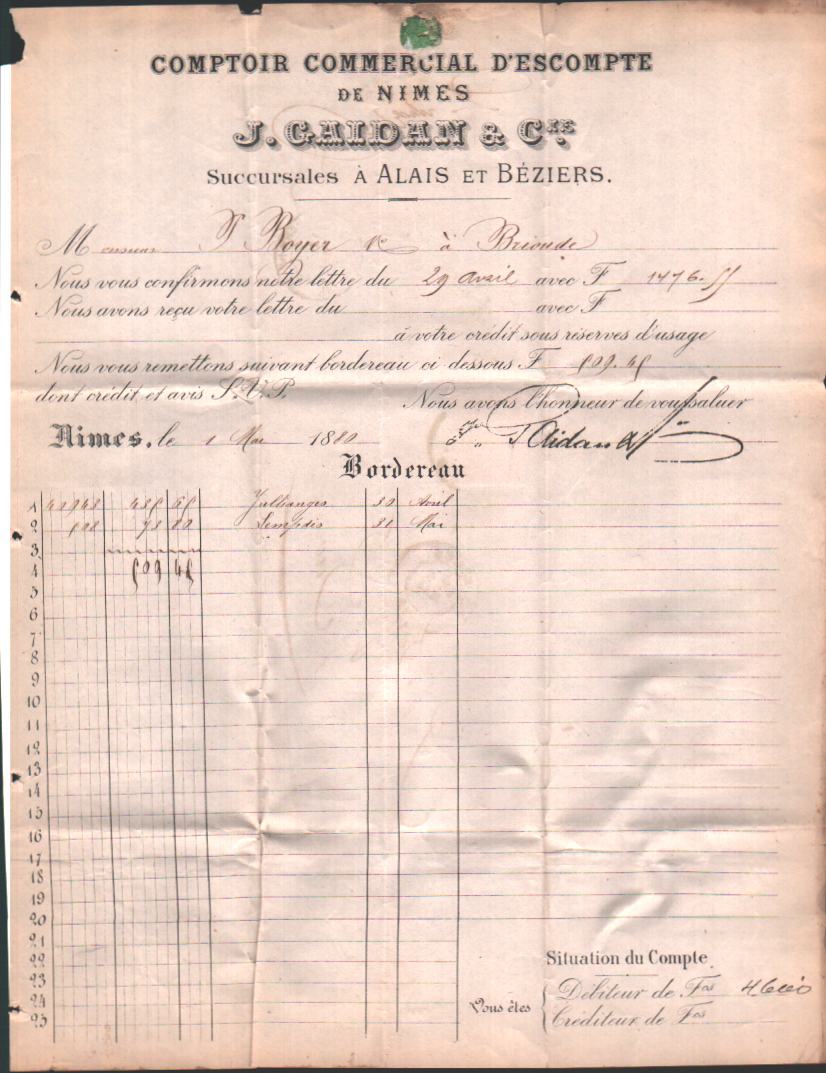 COMPTOIR COMMERCIAL D'ESCOMPTE
DE NIMES
J. GAIDAN & CIE
Succursales À ALAIS ET BÉZIERS.
Monsieur Royer à Brioude
Nous vous confirmons notre lettre du 29 avril avec F 1476.55
Nous avons reçu votre lettre du avec F
à votre crédit sous réserves d'usage
Nous vous remettons suivant bordereau ci dessous F 509.45
dont crédit et avis S.V.P.
Nous avons l'honneur de vous saluer
Nimes, le 1 Mai 1880
J. Gaidan
Bordereau
1 Jullianges 30 Avril
2 Lempdes 31 Mai
3
4 509 45
5
6
7
8
9
10
11
12
13
14
15
16
17
18
19
20
21
22
23
24
25
Situation du Compte
Vous êtes
Débiteur de Fcs
Créditeur de Fcs